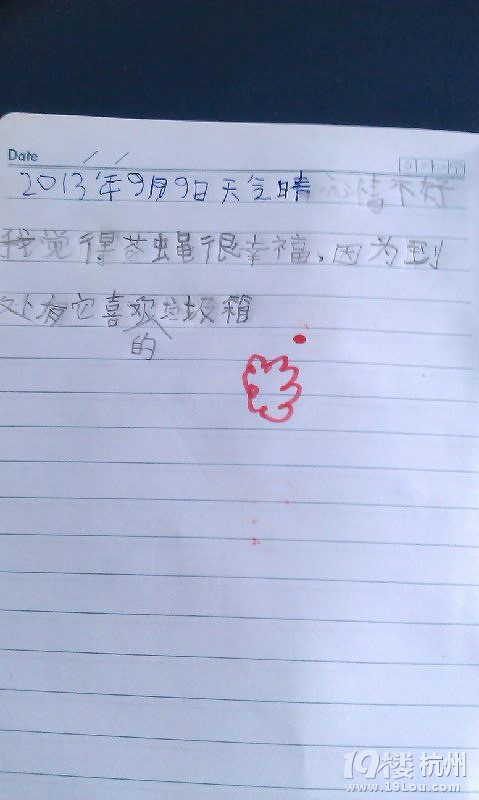 Date / /
2013年9月9日天气晴 心情不好
我觉得苍蝇很幸福,因为到
处有它喜欢的垃圾箱
19楼 杭州
www.19lou.com